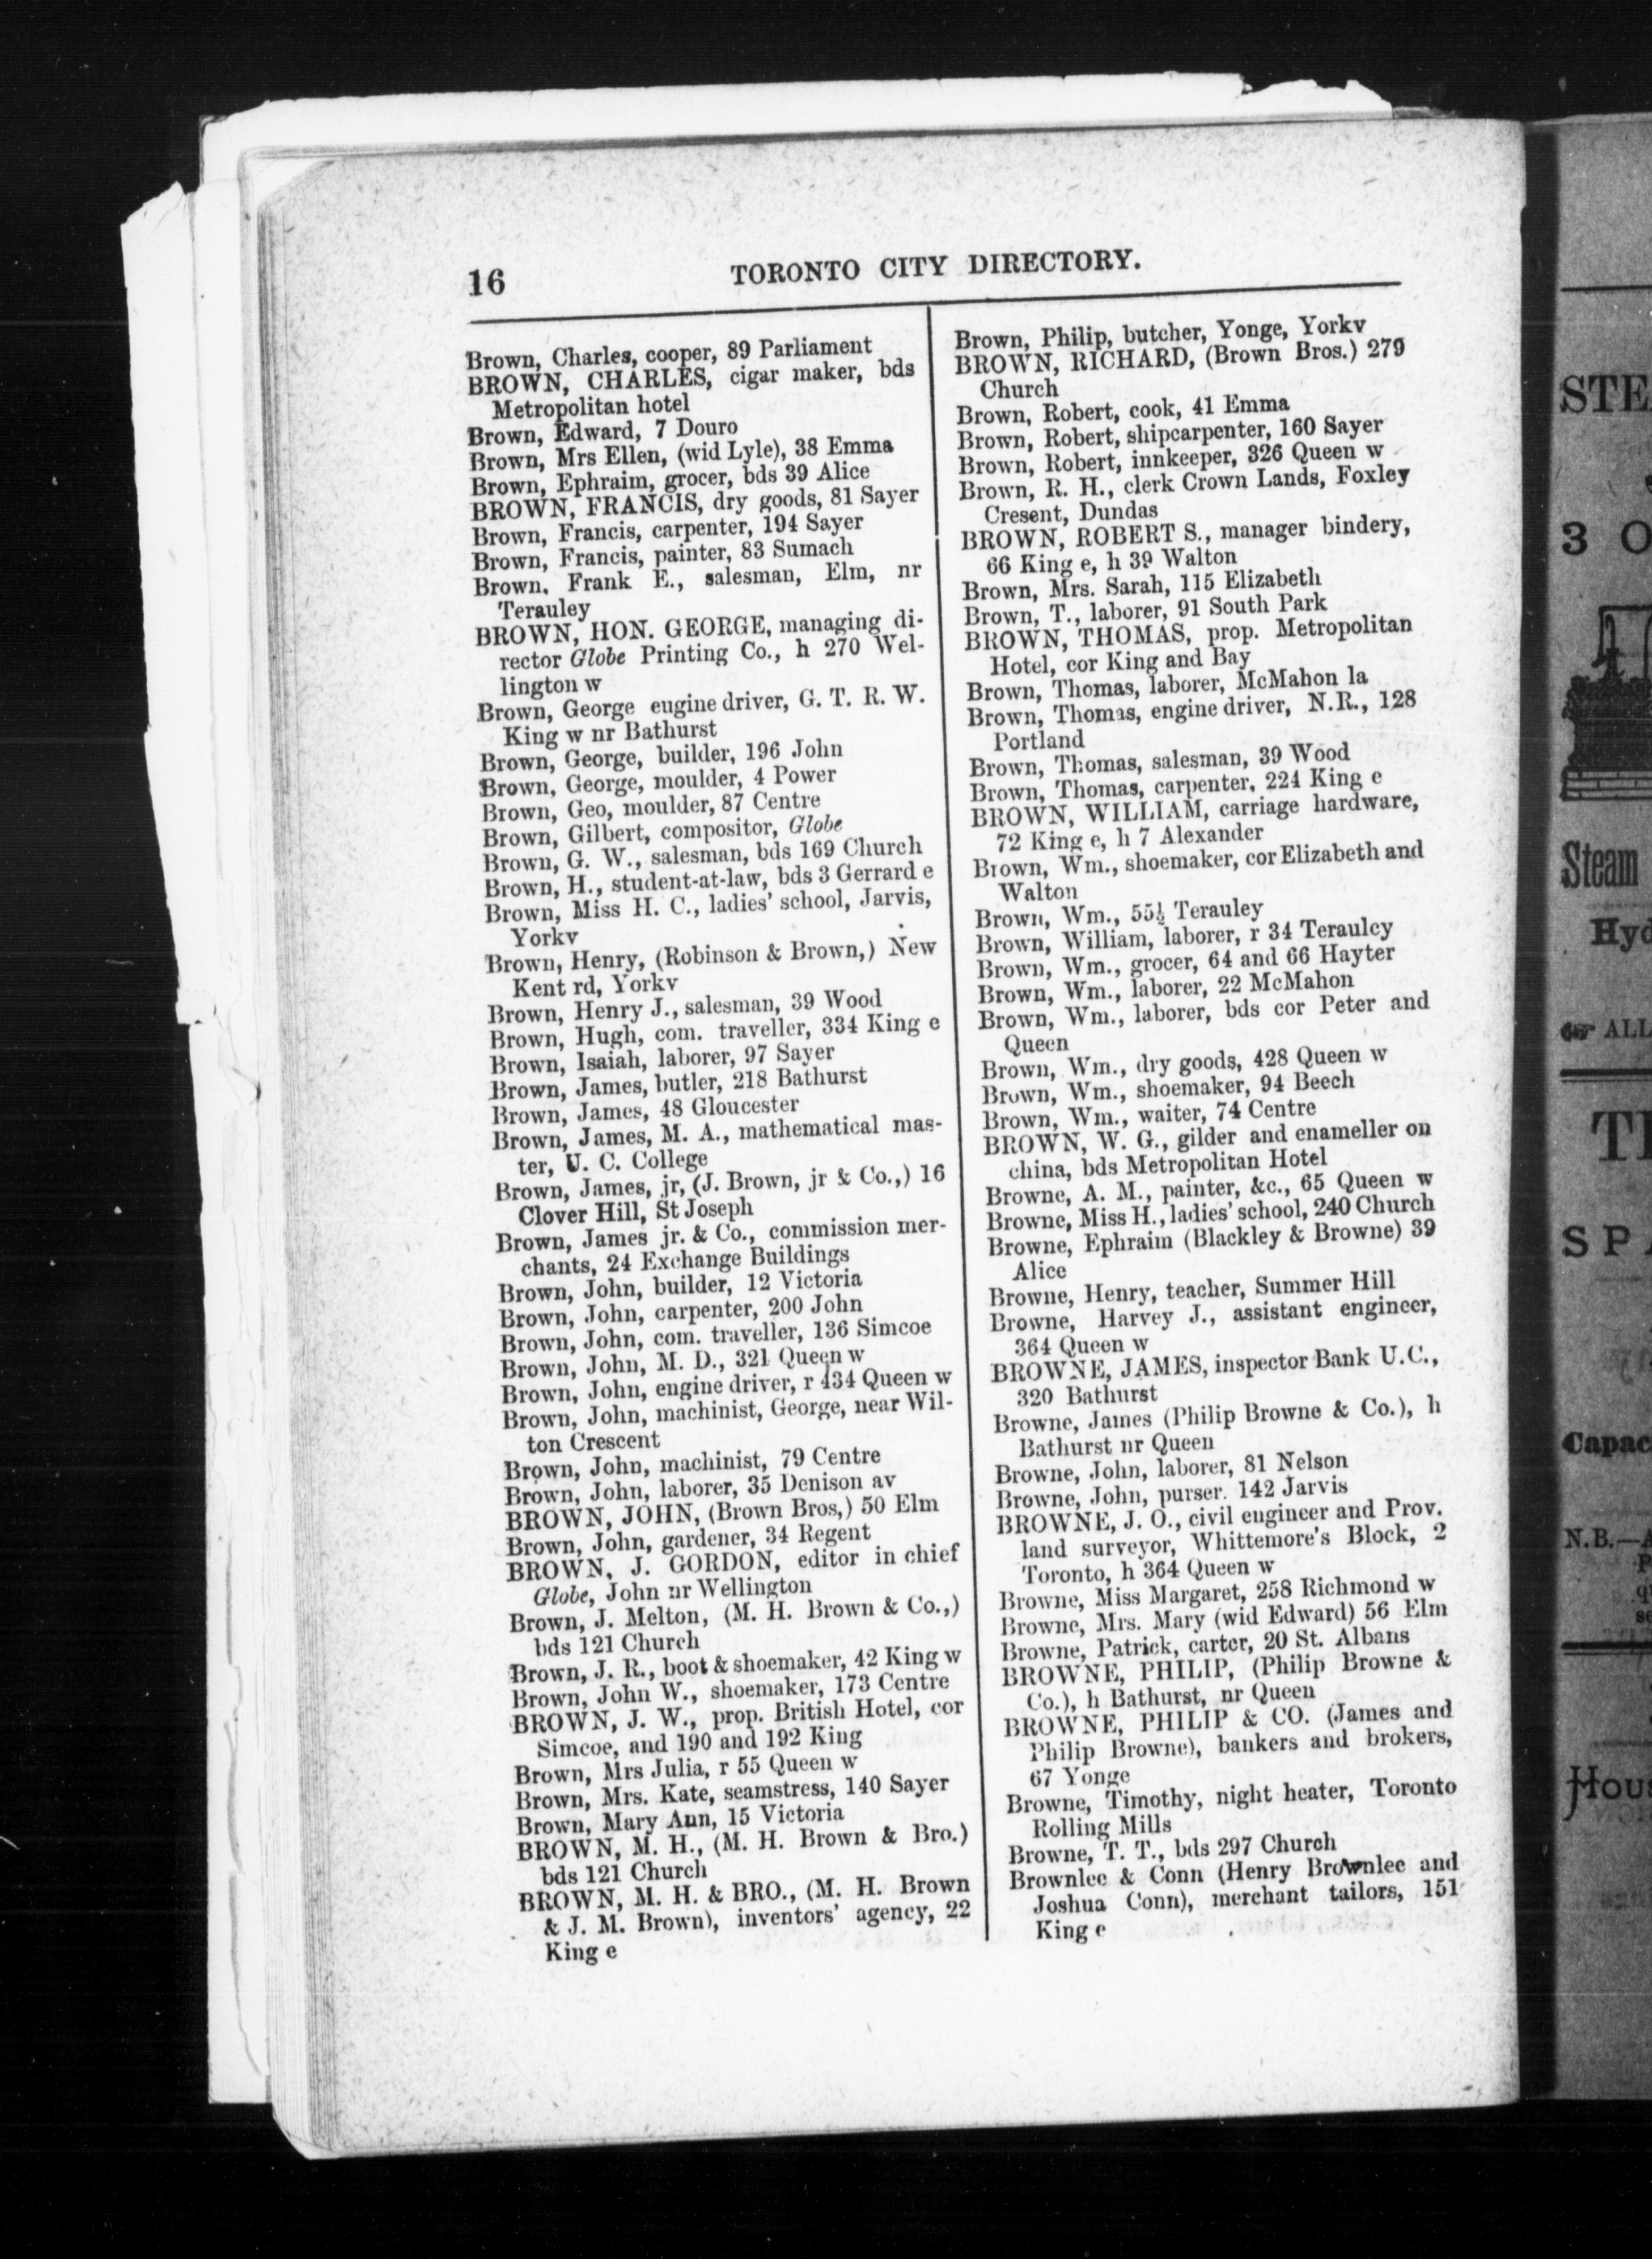 16
TORONTO CITY DIRECTORY.
Brown, Charles, cooper, 89 Parliament
BROWN, CHARLES, cigar maker, bds
Metropolitan hotel
Brown, Edward, 7 Douro
Brown, Mrs Ellen, (wid Lyle), 38 Emma
Brown, Ephraim, grocer, bds 39 Alice
BROWN, FRANCIS, dry goods, 81 Sayer
Brown, Francis, carpenter, 194 Sayer
Brown, Francis, painter, 83 Sumach
Brown, Frank E., salesman, Elm, nr
Terauley
BROWN, HON. GEORGE, managing di-
rector Globe Printing Co., h 270 Wel-
lington w
Brown, George eugine driver, G. T. R. W.
King w nr Bathurst
Brown, George, builder, 196 John
Brown, George, moulder, 4 Power
Brown, Geo, moulder, 87 Centre
Brown, Gilbert, compositor, Globe
Brown, G. W., salesman, bds 169 Church
Brown, H., student-at-law, bds 3 Gerrard e
Brown, Miss H. C., ladies' school, Jarvis,
Yorkv
Brown, Henry, (Robinson & Brown,) New
Kent rd, Yorkv
Brown, Henry J., salesman, 39 Wood
Brown, Hugh, com. traveller, 334 King e
Brown, Isaiah, laborer, 97 Sayer
Brown, James, butler, 218 Bathurst
Brown, James, 48 Gloucester
Brown, James, M. A., mathematical mas-
ter, U. C. College
Brown, James, jr, (J. Brown, jr & Co.,) 16
Clover Hill, St Joseph
Brown, James jr. & Co., commission mer-
chants, 24 Exchange Buildings
Brown, John, builder, 12 Victoria
Brown, John, carpenter, 200 John
Brown, John, com. traveller, 136 Simcoe
Brown, John, M. D., 321 Queen w
Brown, John, engine driver, r 434 Queen w
Brown, John, machinist, George, near Wil-
ton Crescent
Brown, John, machinist, 79 Centre
Brown, John, laborer, 35 Denison av
BROWN, JOHN, (Brown Bros,) 50 Elm
Brown, John, gardener, 34 Regent
BROWN, J. GORDON, editor in chief
Globe, John nr Wellington
Brown, J. Melton, (M. H. Brown & Co.,)
bds 121 Church
Brown, J. R., boot & shoemaker, 42 King w
Brown, John W., shoemaker, 173 Centre
BROWN, J. W., prop. British Hotel, cor
Simcoe, and 190 and 192 King
Brown, Mrs Julia, r 55 Queen w
Brown, Mrs. Kate, seamstress, 140 Sayer
Brown, Mary Ann, 15 Victoria
BROWN, M. H., (M. H. Brown & Bro.)
bds 121 Church
BROWN, M. H. & BRO., (M. H. Brown
& J. M. Brown), inventors' agency, 22
King e
Brown, Philip, butcher, Yonge, Yorkv
BROWN, RICHARD, (Brown Bros.) 279
Church
Brown, Robert, cook, 41 Emma
Brown, Robert, shipcarpenter, 160 Sayer
Brown, Robert, innkeeper, 326 Queen w
Brown, R. H., clerk Crown Lands, Foxley
Cresent, Dundas
BROWN, ROBERT S., manager bindery,
66 King e, h 39 Walton
Brown, Mrs. Sarah, 115 Elizabeth
Brown, T., laborer, 91 South Park
BROWN, THOMAS, prop. Metropolitan
Hotel, cor King and Bay
Brown, Thomas, laborer, McMahon la
Brown, Thomas, engine driver, N.R., 128
Portland
Brown, Thomas, salesman, 39 Wood
Brown, Thomas, carpenter, 224 King e
BROWN, WILLIAM, carriage hardware,
72 King e, h 7 Alexander
Brown, Wm., shoemaker, cor Elizabeth and
Walton
Brown, Wm., 55½ Terauley
Brown, William, laborer, r 34 Terauley
Brown, Wm., grocer, 64 and 66 Hayter
Brown, Wm., laborer, 22 McMahon
Brown, Wm., laborer, bds cor Peter and
Queen
Brown, Wm., dry goods, 428 Queen w
Brown, Wm., shoemaker, 94 Beech
Brown, Wm., waiter, 74 Centre
BROWN, W. G., gilder and enameller on
china, bds Metropolitan Hotel
Browne, A. M., painter, &c., 65 Queen w
Browne, Miss H., ladies' school, 240 Church
Browne, Ephraim (Blackley & Browne) 39
Alice
Browne, Henry, teacher, Summer Hill
Browne, Harvey J., assistant engineer,
364 Queen w
BROWNE, JAMES, inspector Bank U.C.,
320 Bathurst
Browne, James (Philip Browne & Co.), h
Bathurst nr Queen
Browne, John, laborer, 81 Nelson
Browne, John, purser. 142 Jarvis
BROWNE, J. O., civil engineer and Prov.
land surveyor, Whittemore's Block, 2
Toronto, h 364 Queen w
Browne, Miss Margaret, 258 Richmond w
Browne, Mrs. Mary (wid Edward) 56 Elm
Browne, Patrick, carter, 20 St. Albans
BROWNE, PHILIP, (Philip Browne &
Co.), h Bathurst, nr Queen
BROWNE, PHILIP & CO. (James and
Philip Browne), bankers and brokers,
67 Yonge
Browne, Timothy, night heater, Toronto
Rolling Mills
Browne, T. T., bds 297 Church
Brownlee & Conn (Henry Brownlee and
Joshua Conn), merchant tailors, 151
King e
STE
3 O
Steam
Hyd
ALL
SPA
Capac
N.B.—A
Hous